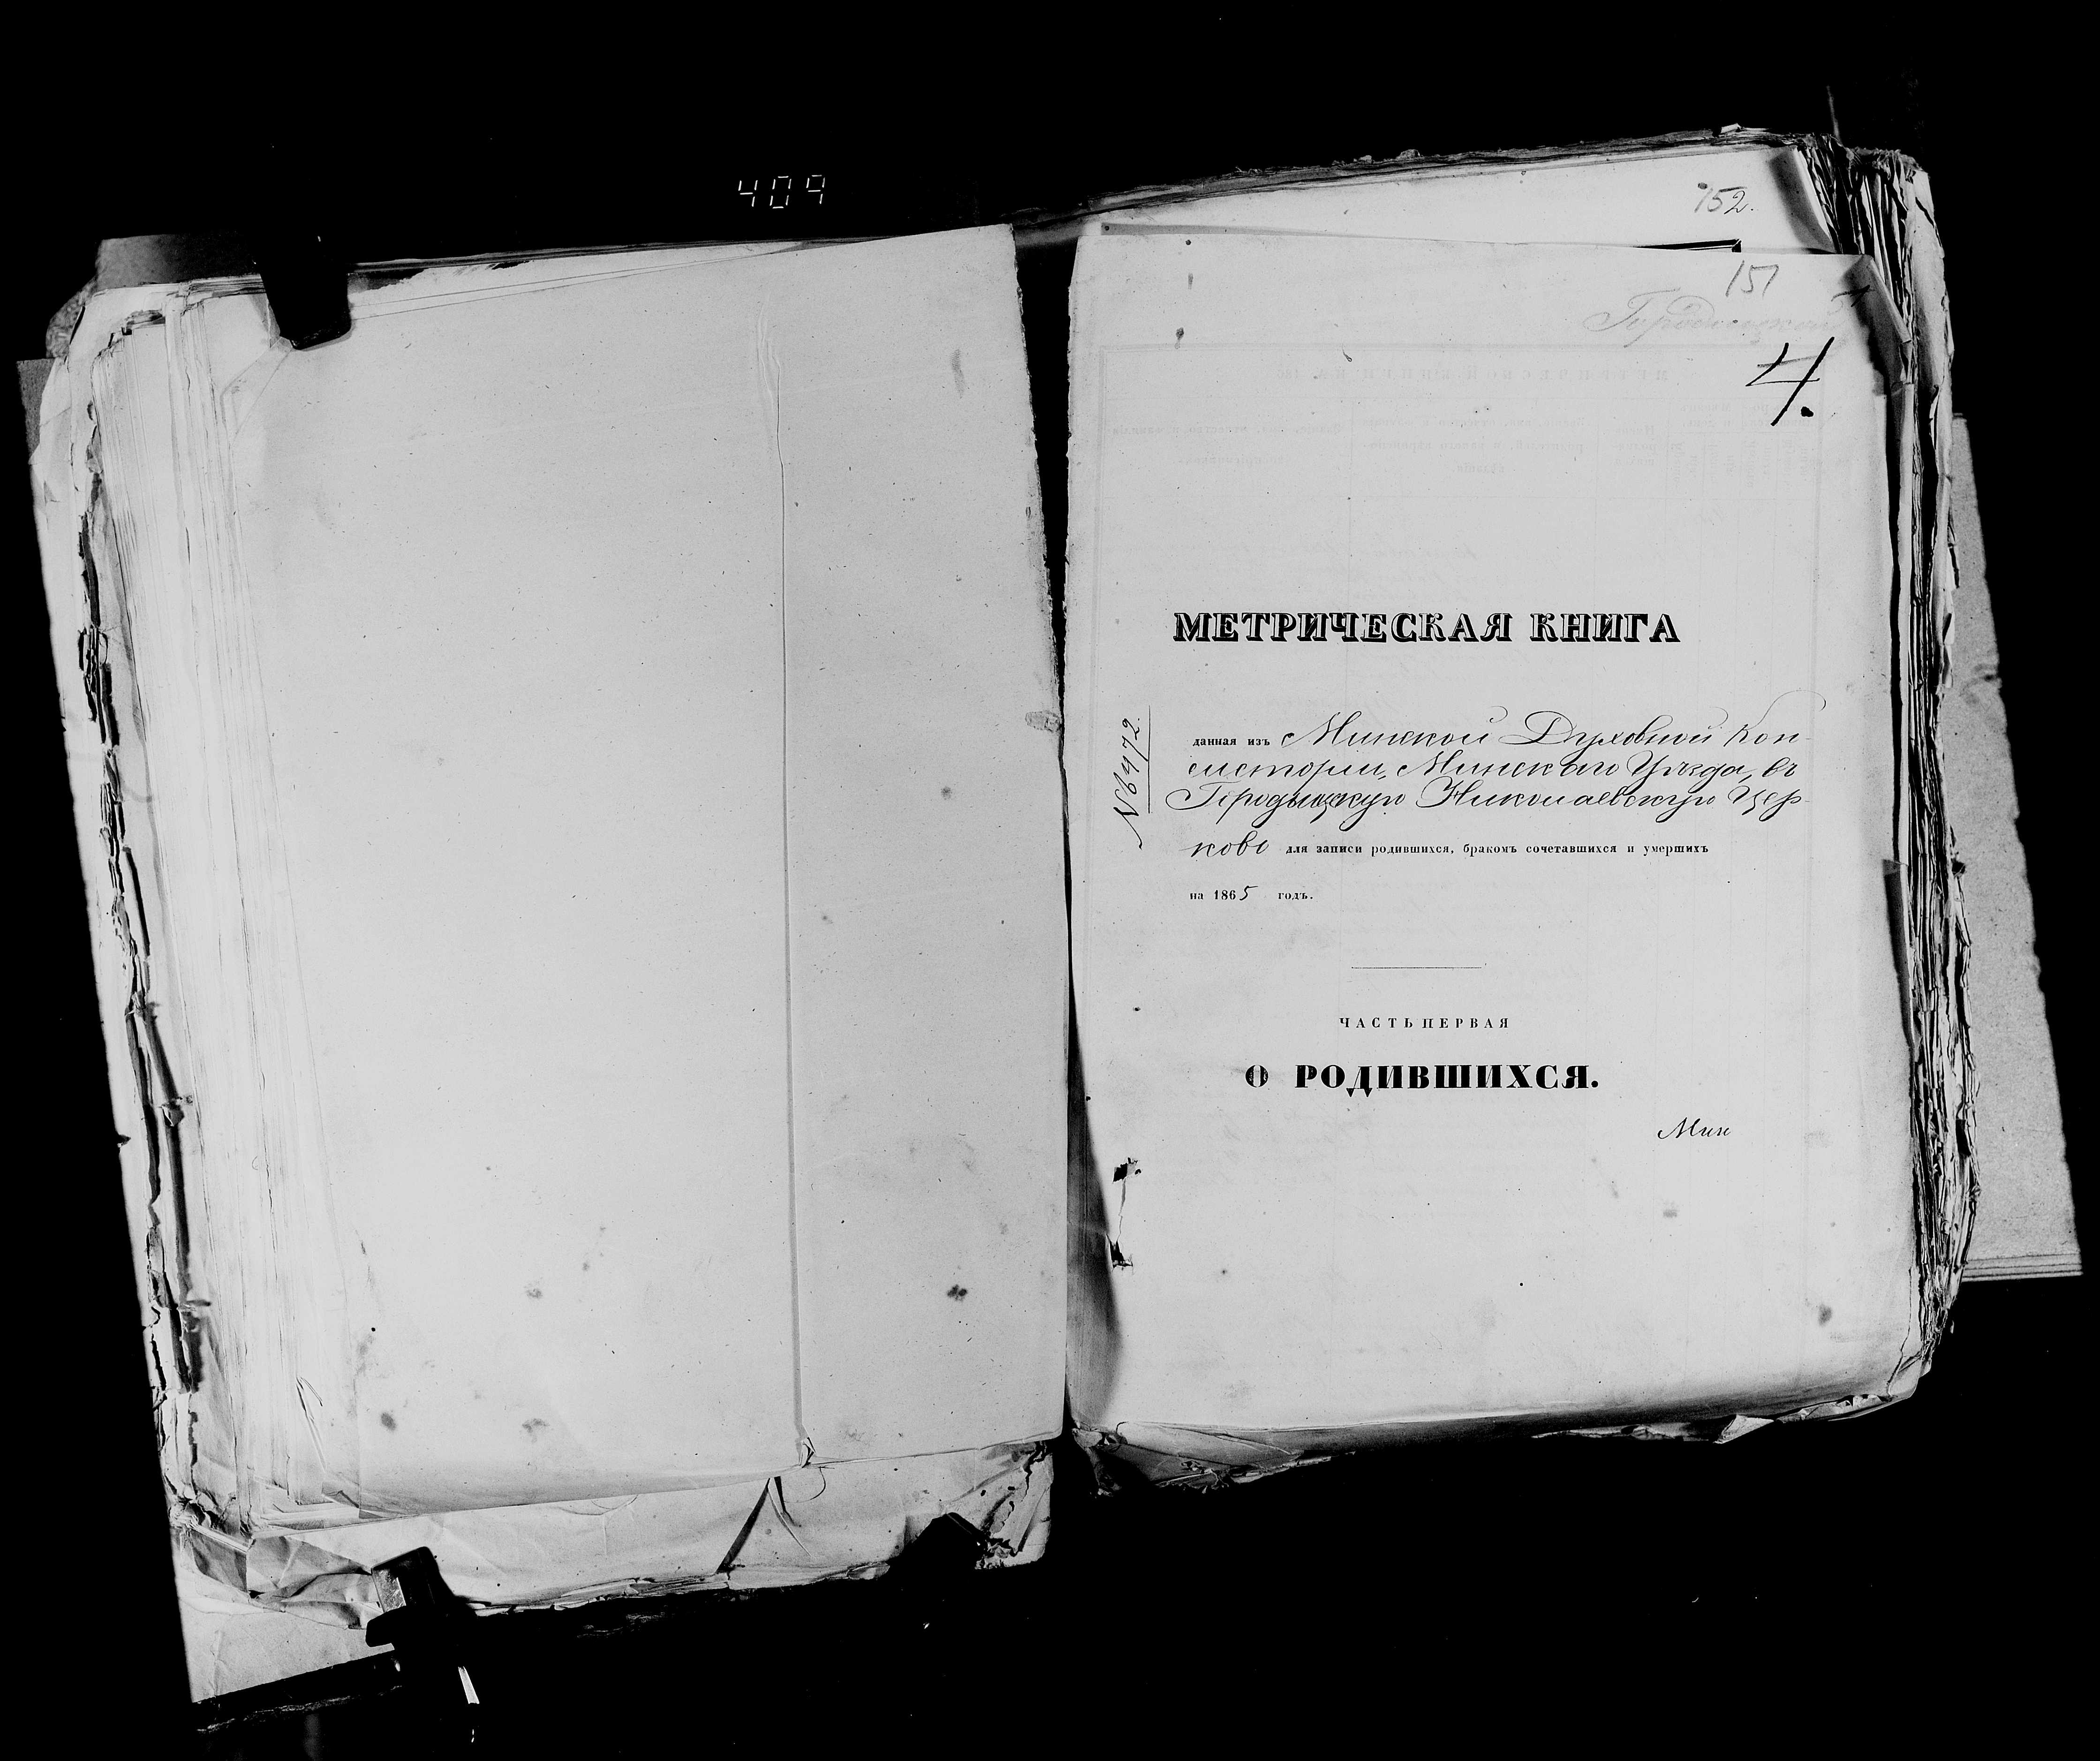 409
152.
151
4.
МЕТРИЧЕСКАЯ КНИГА
№6472.
данная изъ Минской Духовной Кон-
систоріи, Минскаго Уѣзда, въ
Городищскую Николаевскую Цер-
ковь для записи родившихся, бракомъ сочетавшихся и умершихъ
на 1865 годъ.
ЧАСТЬ ПЕРВАЯ
О РОДИВШИХСЯ.
Мин